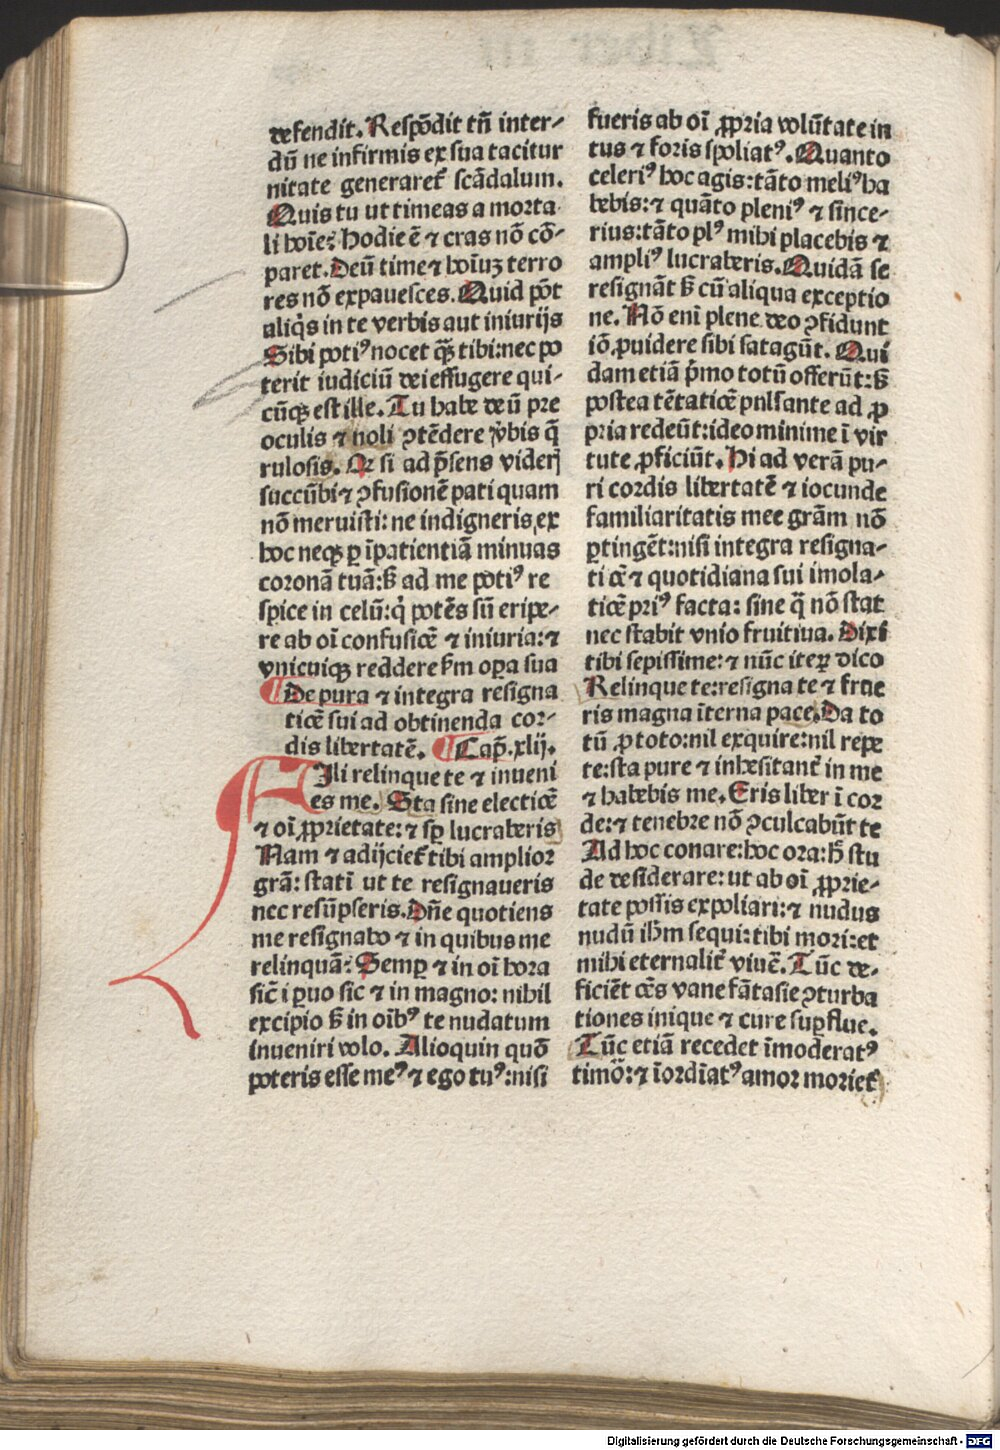 defendit. Respōdit tn̄ inter⸗
dū ne infirmis ex sua tacitur
nitate generaret᷑ scādalum.
Quis tu ut timeas a morta
li hoīe? Hodie ē ⁊ cras nō cō⸗
paret. Deū time ⁊ hoīuꝫ terro
res nō expauesces. Quid pōt
aliq̇s in te verbis aut iniurijs
Sibi potiꝰ nocet q̄ꝫ tibi: nec po
terit iudiciū dei effugere qui⸗
cūqꝫ est ille. Tu habe deū pre
oculis ⁊ noli ꝯtēdere v̓bis q̄
rulosis. Qꝛ si ad p̄sens viderꝭ
succūbi ⁊ ꝯfusionē pati quam
nō meruisti: ne indigneris, ex
hoc neqꝫ ꝑ īpatientiā minuas
coronā tuā: sꝫ ad me potiꝰ re
spice in celū: q̇ potēs sū eripe⸗
re ab oī confusiōe ⁊ iniuria: ⁊
vnicuiqꝫ reddere scd̓m oꝑa sua
De pura ⁊ integra resigna
tiōe sui ad obtinenda cor⸗
dis libertatē. Cap̄. xlij.
Ili relinque te ⁊ inueni
es me. Sta sine electiōe
⁊ oī ꝓprietate: ⁊ sꝑ lucraberis
Nam ⁊ adijciet᷑ tibi amplior
grā: statī ut te resignaueris
nec resūpseris. Dn̄e quotiens
me resignabo ⁊ in quibus me
relinquā? Semꝑ ⁊ in oī hora
sic̄ ī ꝑuo sic ⁊ in magno: nihil
excipio sꝫ in oībꝰ te nudatum
inueniri volo. Alioquin quō
poteris esse meꝰ ⁊ ego tuꝰ: nisi
fueris ab oī ꝓpria volūtate in
tus ⁊ foris spoliatꝰ. Quanto
celeriꝰ hoc agis: tāto meliꝰ ha
bebis: ⁊ quāto pleniꝰ ⁊ since⸗
rius: tāto plꝰ mihi placebis ⁊
ampliꝰ lucraberis. Quidā se
resignāt sꝫ cū aliqua exceptio
ne. Nō enī plene deo ꝯfidunt
iō ꝓuidere sibi satagūt. Qui
dam etiā p̄mo totū offerūt: sꝫ
postea tētatiōe pulsante ad ꝓ
pria redeūt: ideo minime ī vir
tute ꝓficiūt. Hi ad verā pu⸗
ri cordis libertatē ⁊ iocunde
familiaritatis mee grām nō
ꝑtingēt: nisi integra resigna⸗
tiōe ⁊ quotidiana sui imola⸗
tiōe priꝰ facta: sine q̄ nō stat
nec stabit vnio fruitiua. Dixi
tibi sepissime: ⁊ nūc iteꝝ dico
Relinque te: resigna te ⁊ frue
ris magna īterna pace. Da to
tū ꝓ toto: nil exquire: nil repe
te: sta pure ⁊ inhesitant᷑ in me
⁊ habebis me. Eris liber ī cor
de: ⁊ tenebre nō ꝯculcabūt te
Ad hoc conare: hoc ora: h̄ stu
de desiderare: ut ab oī ꝓprie⸗
tate possis expoliari: ⁊ nudus
nudū ih̄m sequi: tibi mori: et
mihi eternalit᷑ viuē. Tūc de⸗
ficiēt oēs vane fātasie ꝯturba
tiones inique ⁊ cure suꝑflue.
Tūc etiā recedet īmoderatꝰ
timor: ⁊ īordīatꝰ amor moriet᷑
Digitalisierung gefördert durch die Deutsche Forschungsgemeinschaft - DFG